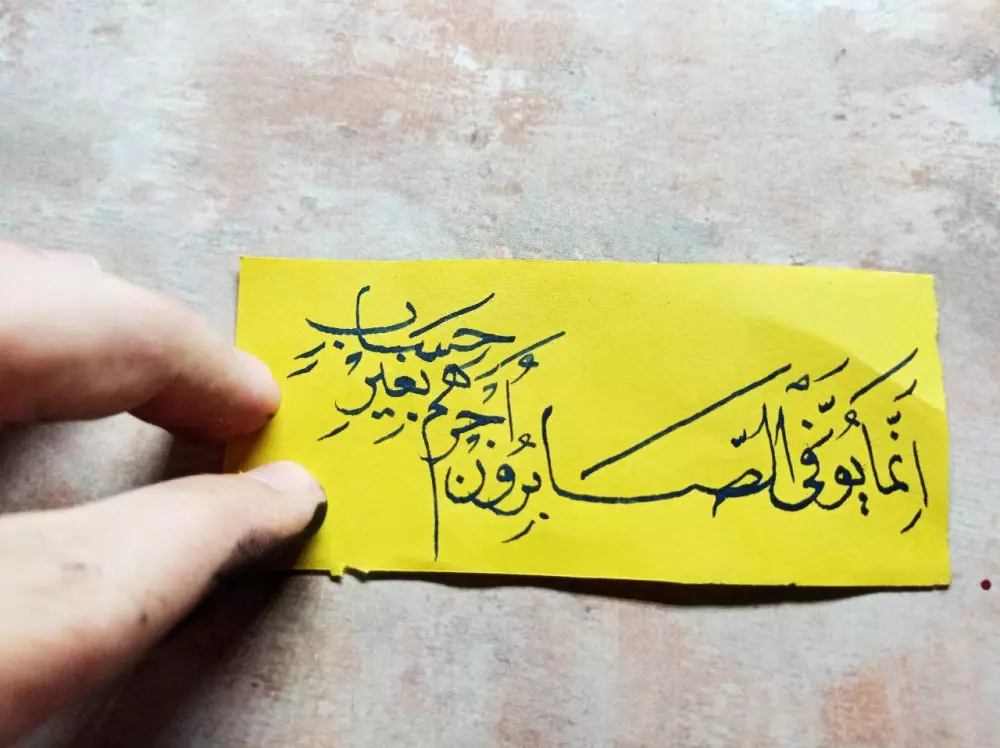 اِنَّمَا يُوَفَّى الصَّابِرُونَ اَجْرَهُمْ بِغَيْرِ حِسَابٍ